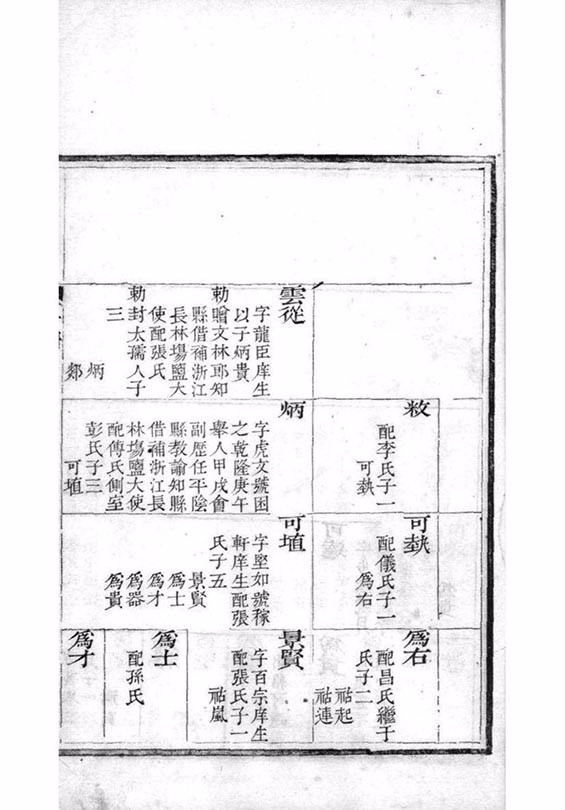 雲從
字龍臣庠生
以子炳貴
勅贈文林郎知
縣借補浙江
長林場鹽大
使配張氏
勅封太孺人子
三
炳
郯
敉
配李氏子一
可埶
炳
字虎文號困
之乾隆庚午
舉人甲戌會
副歷任平陰
縣教諭知縣
借補浙江長
林場鹽大使
配傅氏側室
彭氏子三
可埴
可埶
配儀氏子一
爲右
可埴
字堅如號稼
軒庠生配張
氏子五
景賢
爲士
爲才
爲器
爲貴
爲右
配昌氏繼于
氏子二
祜起
祜連
景賢
字百宗庠生
配張氏子一
祜嵐
爲士
配孫氏
爲才